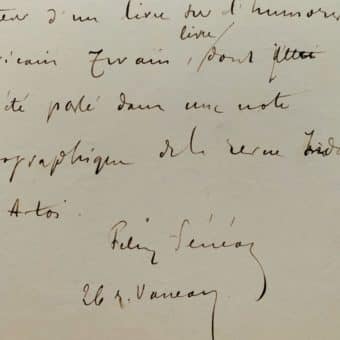 teur d'un livre sur l'humoris
livre
ricain Twain, dont
été parlé dans une note
ographique de la revue Indé
Artoi.
Félix Fénéon
26 r. Vaneau